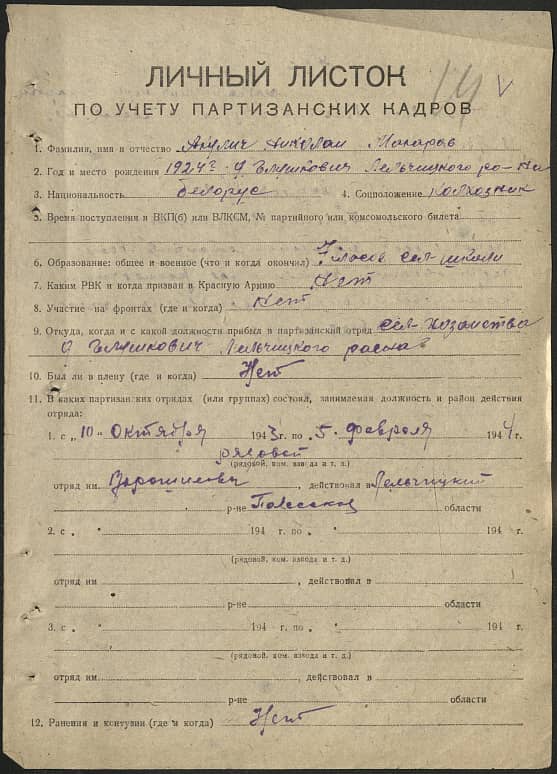 14 V
ЛИЧНЫЙ ЛИСТОК
ПО УЧЕТУ ПАРТИЗАНСКИХ КАДРОВ
1. Фамилия, имя и отчество Николай Макаров
2. Год и место рождения 1924 г. Лельчицкого ро-на
3. Национальность белорус 4. Соцположение Колхозник
5. Время поступления в ВКП(б) или ВЛКСМ, № партийного или комсомольского билета
6. Образование: общее и военное (что и когда окончил) 7 класов сел-школи
7. Каким РВК и когда призван в Красную Армию Нет
8. Участие на фронтах (где и когда) Нет
9. Откуда, когда и с какой должности прибыл в партизанский отряд сел-хозаиства
Лельчицкого
10. Был ли в плену (где и когда) Нет
11. В каких партизанских отрядах (или группах) состоял, занимаемая должность и район действия
отряда:
1. с „10" октября 1943 г. по „5. февраля 1944 г.
рядовой
(рядовой, ком. взвода и т. д.)
отряд им. Ворошилова, действовал в Лельчицкий
р-не Полесской области
2. с „ " 194 г. по „ " 194 г.
(рядовой, ком. взвода и т. д.)
отряд им , действовал в
р-не области
3. с „ " 194 г. по „ " 194 г.
(рядовой, ком. взвода и т. д.)
отряд им. , действовал в
р-не области
12. Ранения и контузии (где и когда) Нет